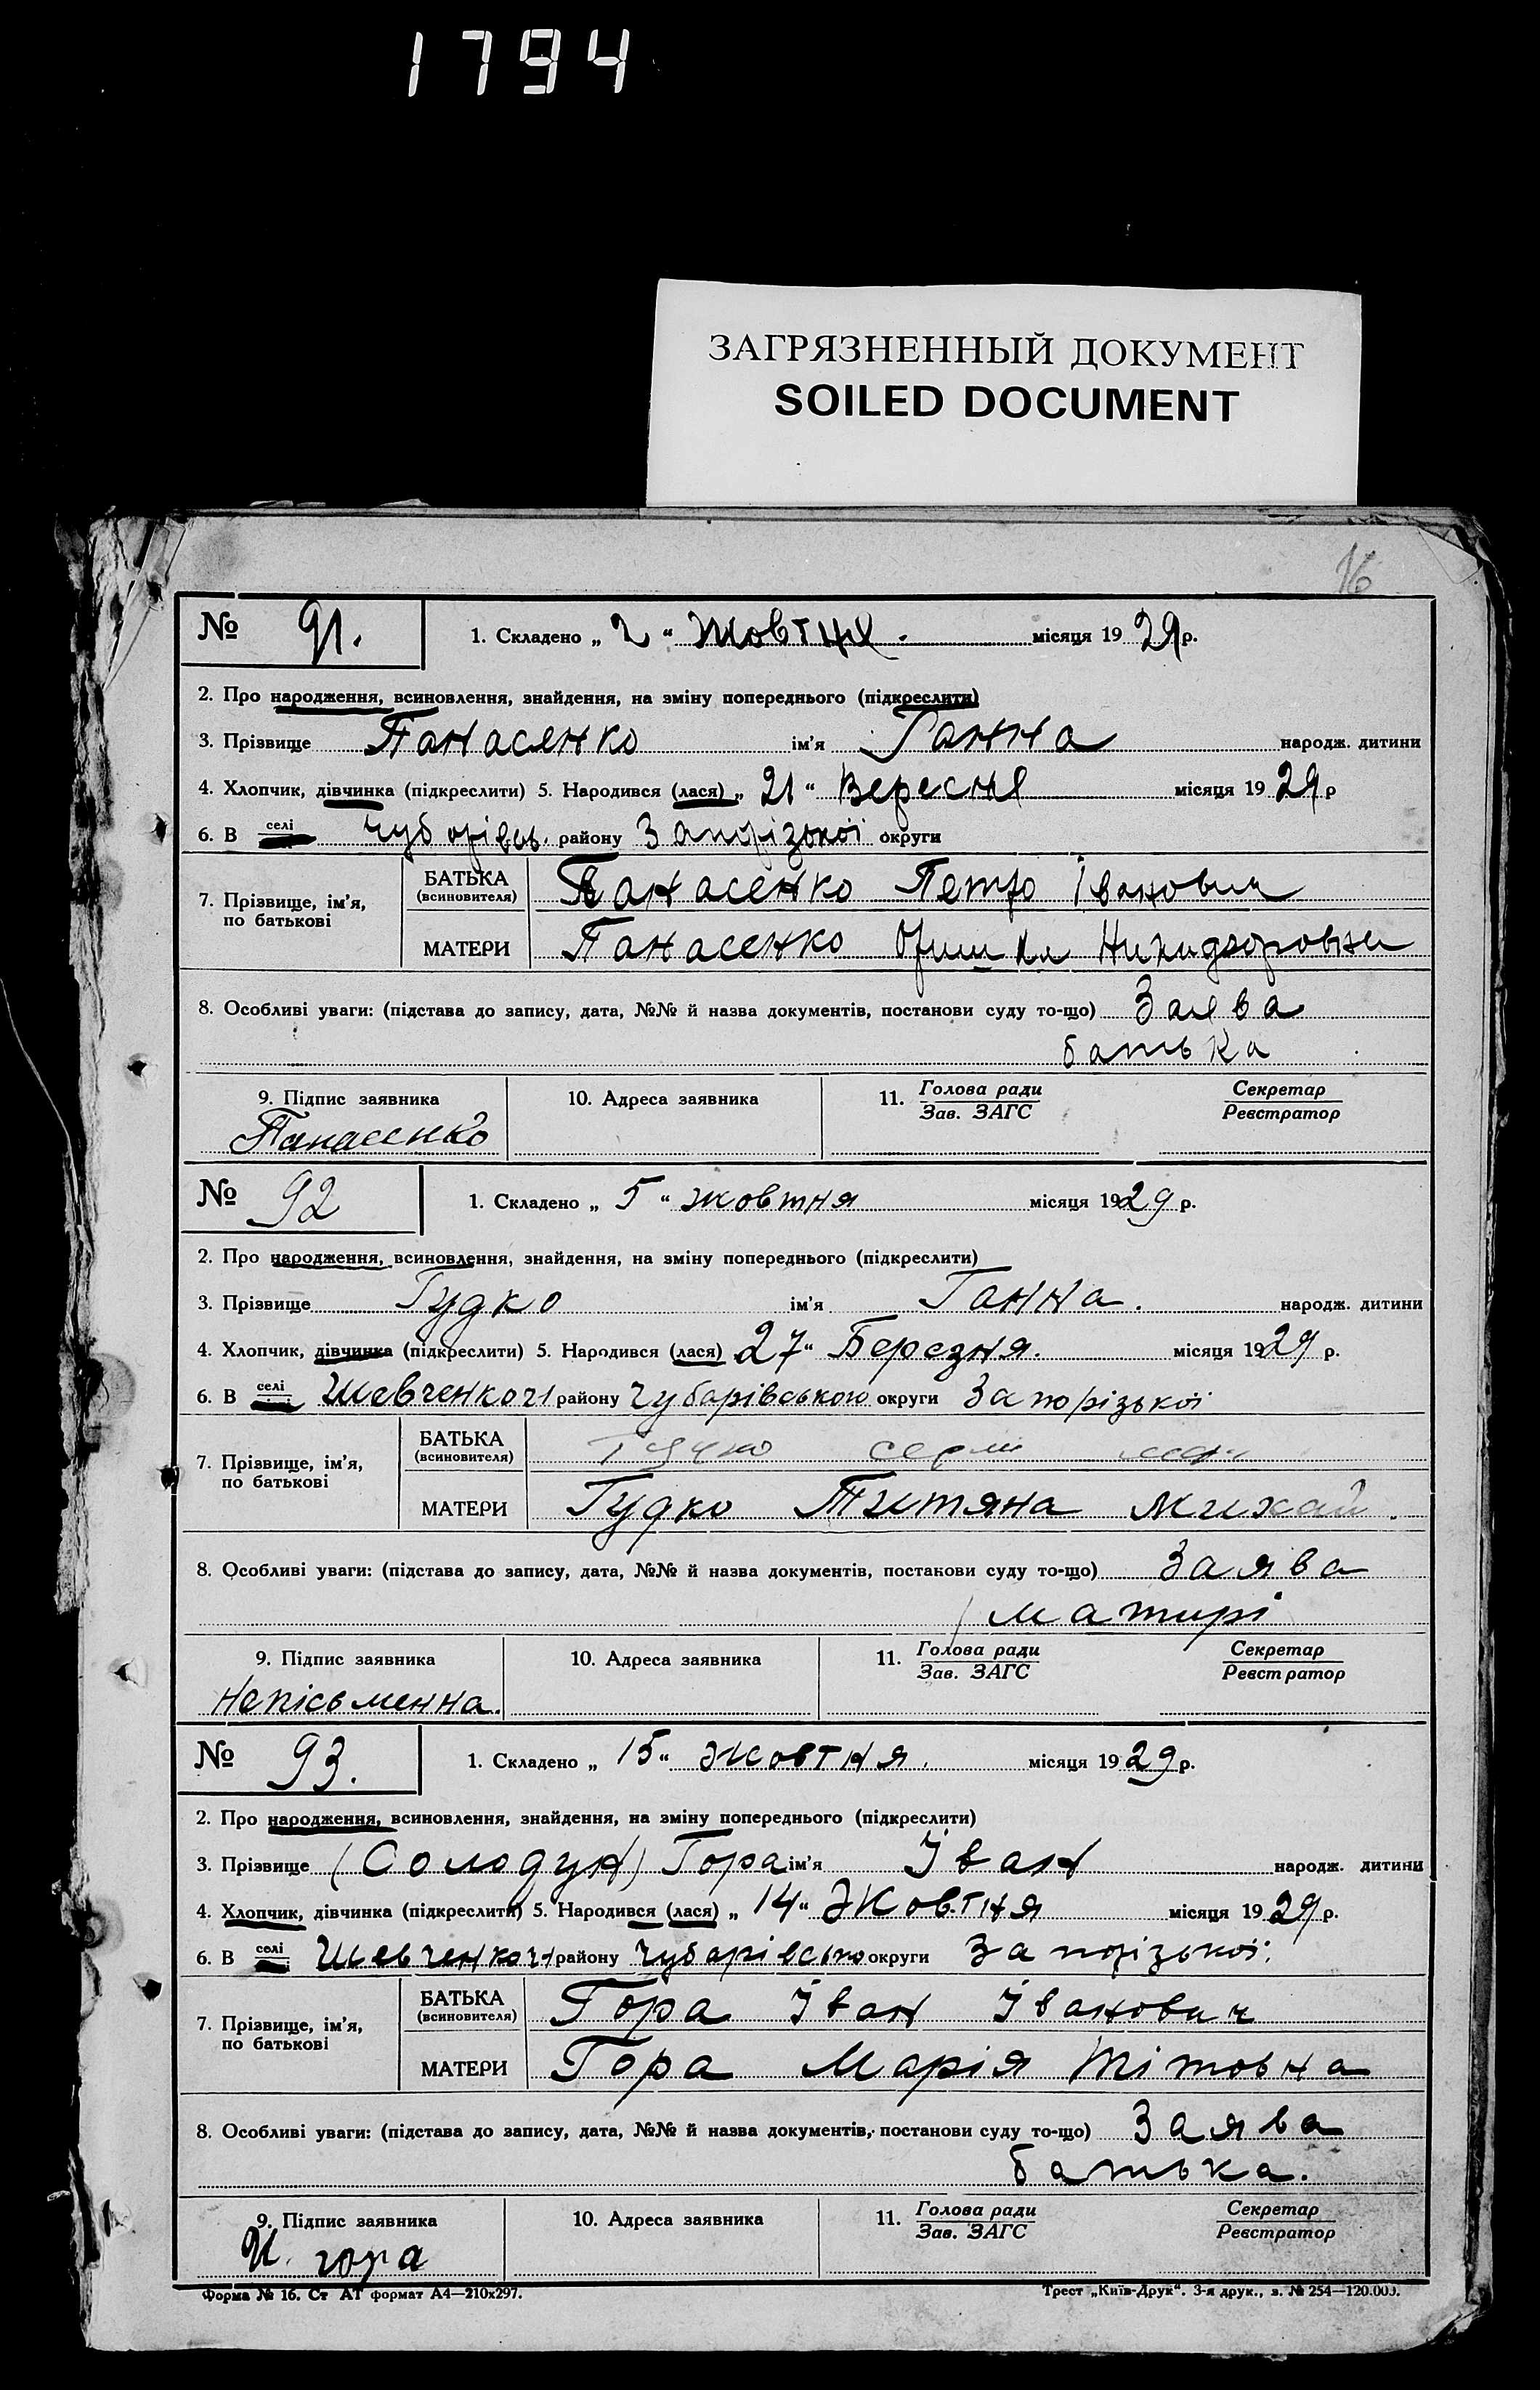 1794
ЗАГРЯЗНЕННЫЙ ДОКУМЕНТ
SOILED DOCUMENT
16
№ 91. 1. Складено „ 2 “ Жовтня . місяця 19 29 р.
2. Про народження, всиновлення, знайдення, на зміну попереднього (підкреслити)
3. Прізвище Панасенко ім'я Ганна народж. дитини
4. Хлопчик, дівчинка (підкреслити) 5. Народився (лася) „ 21 “ Вересня місяця 19 29 р
6. В селі району Запорізької округи
7. Прізвище, ім'я, по батькові
БАТЬКА (всиновителя) Панасенко Петро Іванович
МАТЕРИ Панасенко
8. Особливі уваги: (підстава до запису, дата, №№ й назва документів, постанови суду то-що) Заява
батька
9. Підпис заявника 10. Адреса заявника 11. Голова ради Зав. ЗАГС Секретар Реєстратор
Панасенко
№ 92 1. Складено „ 5 “ жовтня місяця 19 29 р.
2. Про народження, всиновлення, знайдення, на зміну попереднього (підкреслити)
3. Прізвище Гудко ім'я Ганна. народж. дитини
4. Хлопчик, дівчинка (підкреслити) 5. Народився (лася) 27 “ Березня. місяця 19 29 р.
6. В селі району Чубарівського округи Запорізької
7. Прізвище, ім'я, по батькові
БАТЬКА (всиновителя)
МАТЕРИ Гудко Титяна Михай.
8. Особливі уваги: (підстава до запису, дата, №№ й назва документів, постанови суду то-що) Заява
матирі
9. Підпис заявника 10. Адреса заявника 11. Голова ради Зав. ЗАГС Секретар Реєстратор
Непісьменна.
№ 93. 1. Складено „ 15 “ Жовтня. місяця 19 29 р.
2. Про народження, всиновлення, знайдення, на зміну попереднього (підкреслити)
3. Прізвище (Солодун) Гора ім'я Іван народж. дитини
4. Хлопчик, дівчинка (підкреслити) 5. Народився (лася) „ 14 “ Жовтня місяця 19 29 р.
6. В селі району округи Запорізької.
7. Прізвище, ім'я, по батькові
БАТЬКА (всиновителя) Гора Іван Іванович
МАТЕРИ Гора Марія Тітовна
8. Особливі уваги: (підстава до запису, дата, №№ й назва документів, постанови суду то-що) Заява
батька.
9. Підпис заявника 10. Адреса заявника 11. Голова ради Зав. ЗАГС Секретар Реєстратор
И. гора
Форма № 16. Ст АТ формат А4—210х297. Трест „Київ-Друк“. 3-я друк., з. № 254—120.000.